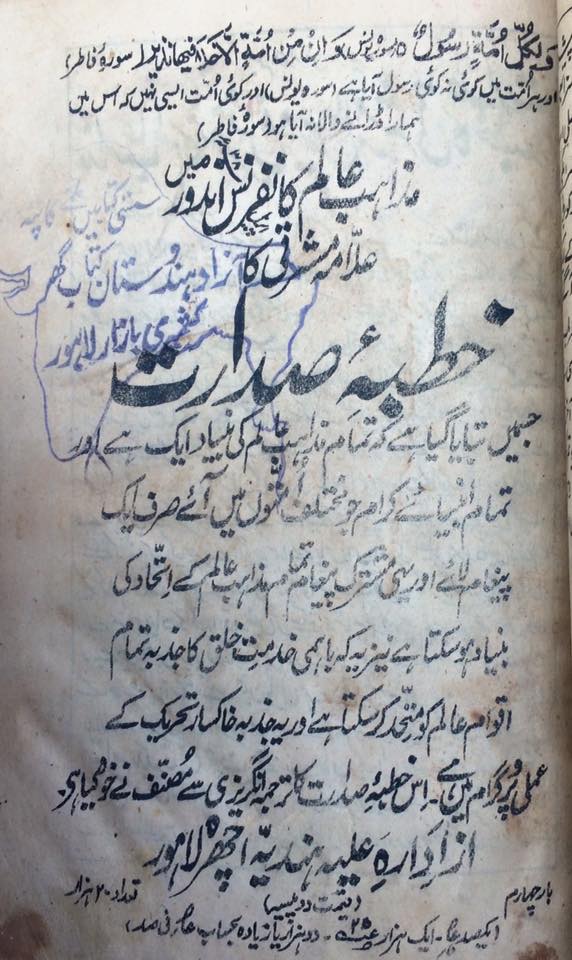 وَلِکُلِّ اُمَّۃٍ رَسُولٌ (سورہ یونس) وَاِنْ مِنْ اُمَّۃٍ اِلَّا خَلَا فِیھَا نَذِیر (سورۂ فاطر)
اور ہر امت میں کوئی نہ کوئی رسول آیا ہے (سورہ یونس) اور کوئی امت ایسی نہیں کہ اس میں
ہمارا ڈرانے والا نہ آیا ہو (سورۂ فاطر)
مذاہب عالم کانفرنس اندور میں
علامہ مشرقی کا
خطبۂ صدارت
سنتی کتابیں کا پتہ
آزاد ہندوستان کتاب گھر
کشمیری بازار لاہور
جسمیں بتایا گیا ہے کہ تمام مذاہب عالم کی بنیاد ایک ہے اور
تمام انبیائے کرام جو مختلف امتوں میں آئے صرف ایک
پیغام لائے اور یہی مشترک پیغام تمام مذاہب عالم کے اتّحاد کی
بنیاد ہو سکتا ہے نیز یہ کہ باہمی خدمتِ خلق کا جذبہ تمام
اقوام عالم کو متّحد کر سکتا ہے اور یہ جذبہ خاکسار تحریک کے
عملی پروگرام میں ہے۔ اِس خطبۂ صدارت کا ترجمہ انگریزی سے مُصنّف نے خود کیا ہے۔
از اِدارہ عَلیہ ہندیہ اچھرہ لاہور
بار چہارم (قیمت دو پیسہ) تعداد ۲۰ ہزار
ایکصد ۔ ایک ہزار ۔ دو ہزار یا زیادہ بحساب فی صد)